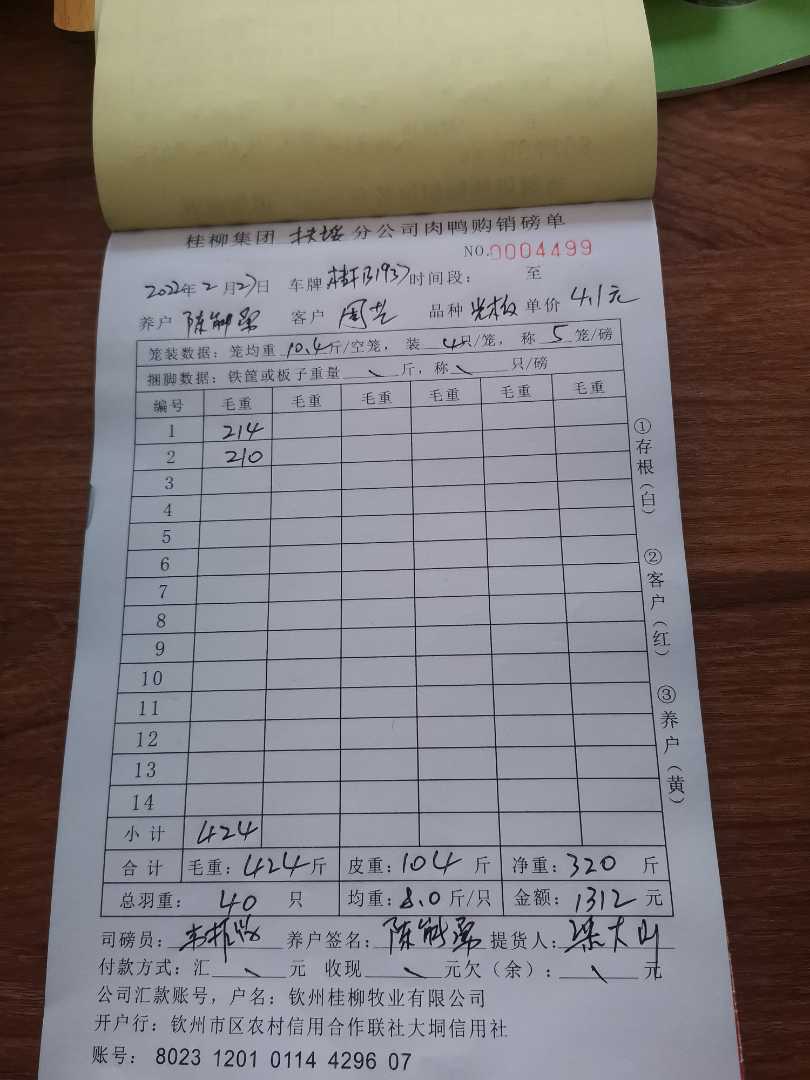 桂柳集团 扶绥 分公司肉鸭购销磅单
NO.0004499
2022年2月27日 车牌 时间段： 至
养户 陈能勇 客户 周艺 品种 光板 单价 4.1元
笼装数据：笼均重 10.4 斤/空笼，装 4 只/笼，称 5 笼/磅
捆脚数据：铁筐或板子重量 \ 斤，称 \ 只/磅
编号 毛重 毛重 毛重 毛重 毛重 毛重
1 214
2 210
3
4
5
6
7
8
9
10
11
12
13
14
小计 424
合计 毛重：424斤 皮重：104 斤 净重：320 斤
总羽重： 40 只 均重：8.0斤/只 金额：1312元
司磅员： 养户签名：陈能勇 提货人：梁大山
付款方式：汇 \ 元 收现 \ 元欠（余）： \ 元
公司汇款账号，户名：钦州桂柳牧业有限公司
开户行：钦州市区农村信用合作联社大垌信用社
账号：8023 1201 0114 4296 07
①存根（白）
②客户（红）
③养户（黄）